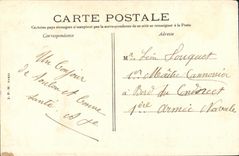 CARTE POSTALE
Certains pays étrangers n'acceptent pas la correspondance de ce côté se renseigner à la Poste
Correspondance
Adresse
Un bonjour
de Toulon et bonne
santé
Mr Léon Souquet
1er Maître Cannonier
à Bord du
1ère Armée Navale